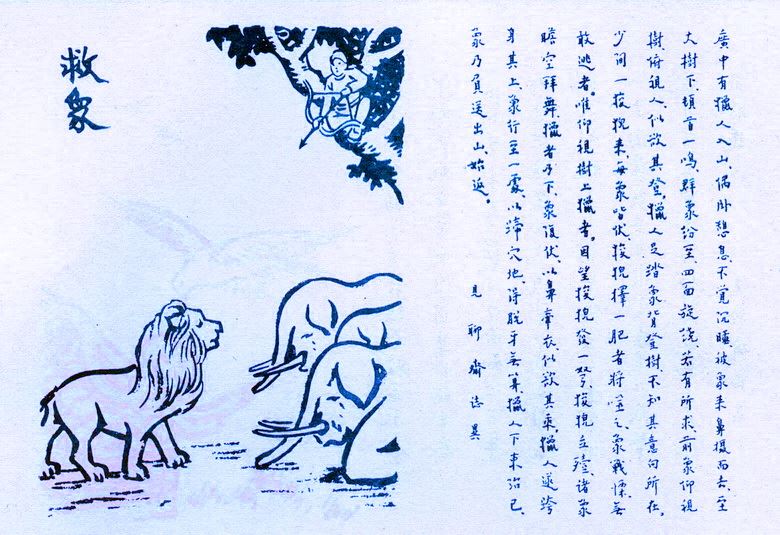 救象
廣中有獵人入山、偶卧憩息、不覺沉睡、被象來鼻攝而去。至
大樹下、頓首一鳴、群象紛至、四面旋繞、若有所求、前象仰視
樹、俯視人、似欲其登。獵人足踏象背登樹、不知其意向所在。
少間一狻猊來、每象皆伏、狻猊擇一肥者將噬之、象戰慄、無
敢逃者。唯仰視樹上獵者。因望狻猊發一弩、狻猊立殪、諸象
瞻空拜舞、獵者乃下、象復伏、以鼻牽衣似欲其乘、獵人遂跨
身其上、象行至一處、以蹄穴地、得脫牙無算、獵人下、束治已、
象乃負送出山、始返。
見聊齋誌異